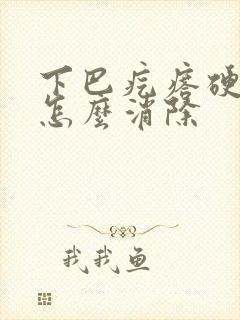 下巴疙瘩硬
怎麼消除
我我鱼